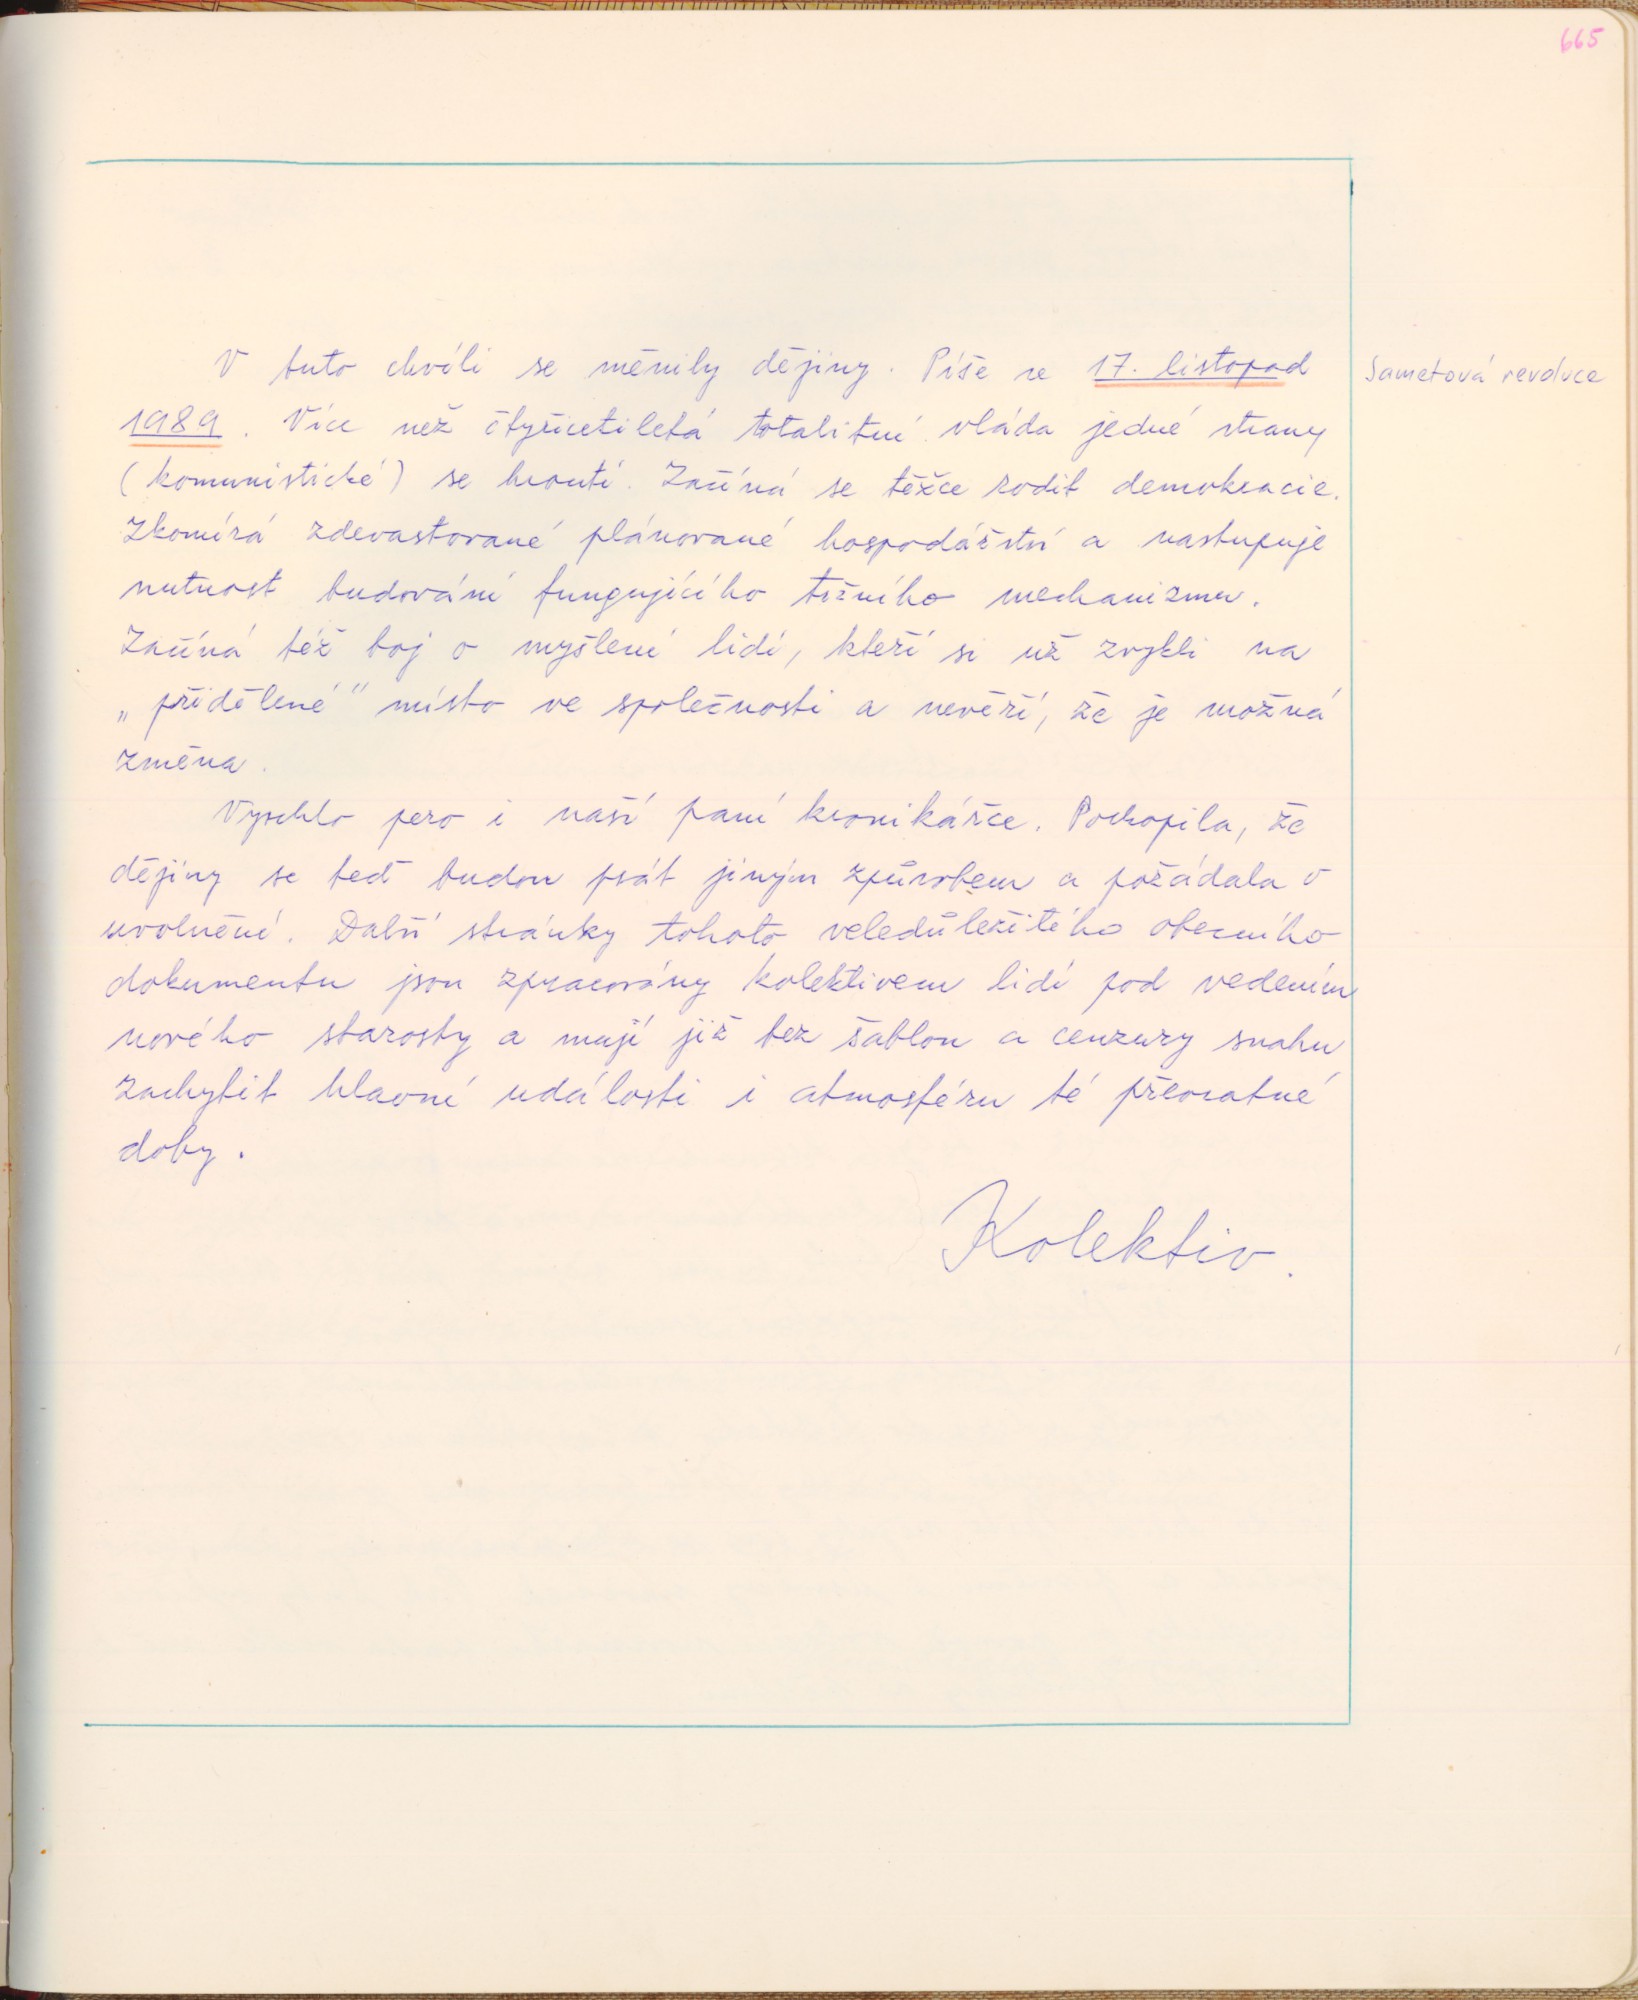 665
V tuto chvíli se měnily dějiny. Píše se 17. listopad
Sametová revoluce
1989. Více než čtyřicetiletá totalitní vláda jedné strany
(komunistické) se hroutí. Začíná se těžce rodit demokracie.
Zkomírá zdevastované plánované hospodářství a nastupuje
nutnost budování fungujícího tržního mechanizmu.
Začíná též boj o myšlení lidí, kteří si už zvykli na
„přidělené“ místo ve společnosti a nevěří, že je možná
změna.
Vyschlo pero i naší paní kronikářce. Pochopila, že
dějiny se teď budou psát jiným způsobem a požádala o
uvolnění. Další stránky tohoto veledůležitého obecního
dokumentu jsou zpracovány kolektivem lidí pod vedením
nového starosty a mají již bez šablon a cenzury snahu
zachytit hlavní události i atmosféru té převratné
doby.
Kolektiv.